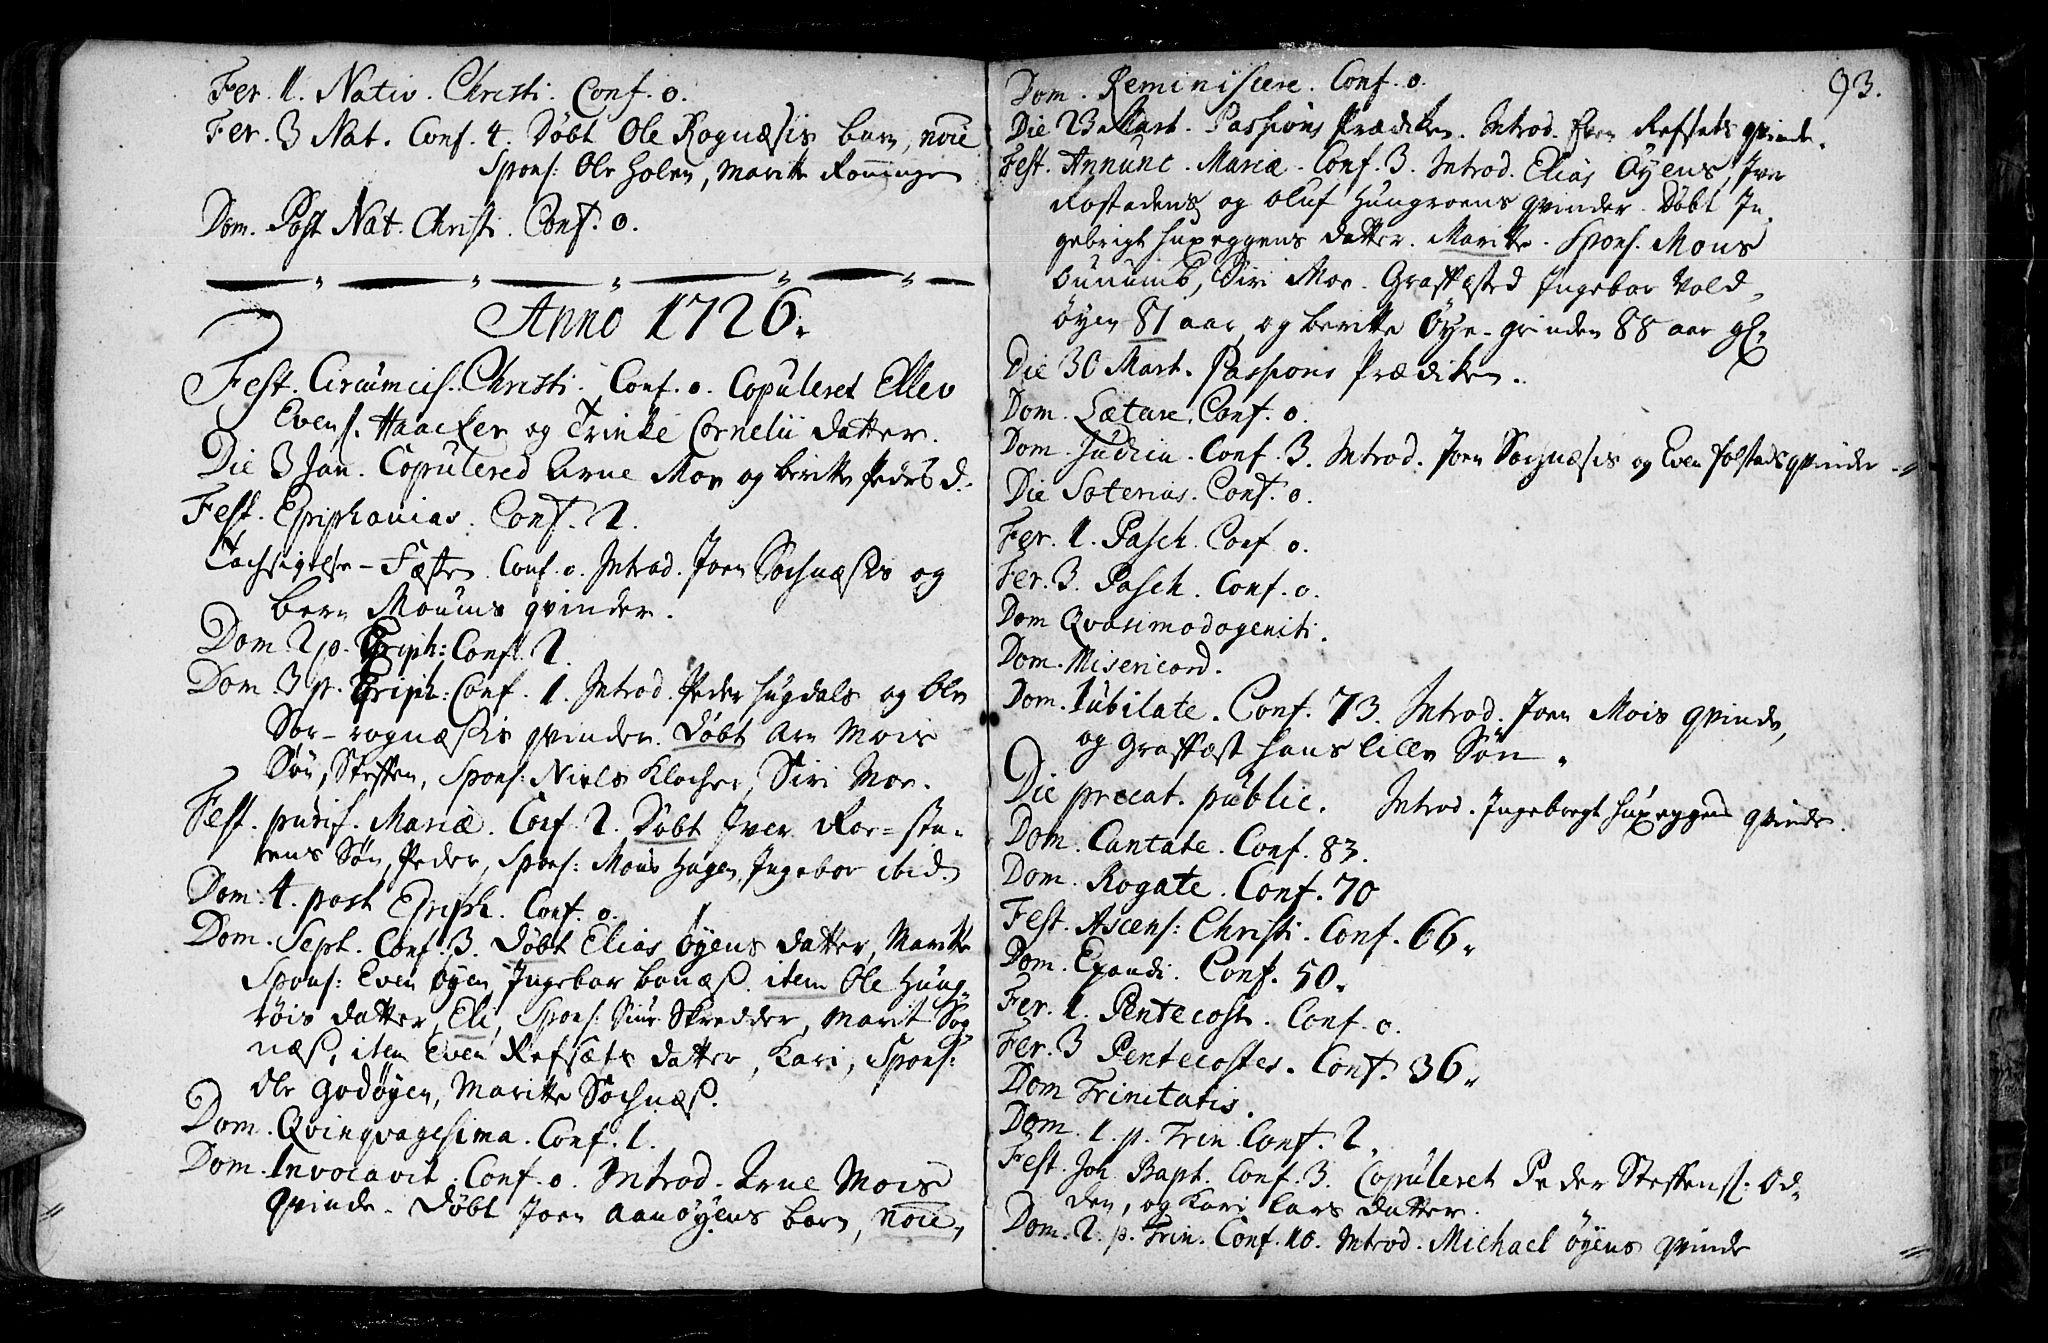 Fer. 1. Nativ. Christi. Conf. 0.
Fer. 3 Nat. Conf. 4. Döbt Ole Rognæsis barn, noïe
Spons: Ole Holen, Maritte Rönningen
Dom. Post Nat. Christi. Conf. 0.
Anno 1726.
Fest. Circumcis. Christi. Conf. 0. Copuleret Ellev
Evens. Haacker og Trinke Cornelii datter.
Die 3 Jan. Copulered Arne Moe og Beritte Peders d.
Fest. Epiphanias. Conf. 2.
Tachsigelse-Fæsten. Conf. 0. Introd. Joen Sochnæsis og
Moums qvinder.
Dom. 2 p. Epiph: Conf. 2.
Dom. 3 p. Epiph: Conf. 1. Introd. Peder Hugdals og Ole
Sör-rognæsis qvinder. Döbt Arn Mois
Sön, Steffen, Spons: Niels Klocker, Siri Moe.
Fest. purif. Mariæ. Conf. 2. Döbt Iver Roe=sta-
Sön, Peder, Spons: Mons Hagen, Ingebor ibid.
Dom. 4. post Epiph. Conf. 0.
Dom. Sept. Conf. 3. Döbt Elias Öyens datter, Maritte
Spons: Even Öyen, Ingebor Bonæs. item Ole Hung-
röis datter, Eli, Spons: Siur Skredder, Marit Sog
næs, item Even Refsæts datter, Kari, Spons:
Ole Godöyen, Maritte Sochnæs.
Dom. Qvinqvagesima. Conf. 1.
Dom. Invocavit. Conf. 0. Introd. Arne Mois
qvinde. Döbt Joen Aanöyens barn, noïe,
93.
Dom. Reminiscere. Conf. 0.
Die 23 Mart. Passions Prædiken. Introd. Even Refsets qvinde.
Fest. Annunc. Mariæ. Conf. 3. Introd. Elias Öyens, Iver
Rostadens og Oluf Hungroens qvinder. Döbt In-
gebrigt Huxeggens datter. Maritte. Spons. Mons
Siri Moe. Graffæsted Ingebor Vold-
öyen 81 aar, og Beritte Öye-grinden 88 aar gl.
Die 30 Mart. Passions Prædiken.
Dom. Lætare. Conf. 0.
Dom. Judica. Conf. 3. Introd. Joen Sochnæsis og Even Folstads qvinder
Die Conf. 0.
Fer. 1. Pasch. Conf. 0.
Fer. 3. Pasch. Conf. 0.
Dom Qvasimodogeniti.
Dom. Misericord.
Dom. Jubilate. Conf. 73. Introd. Joen Mois qvinde,
og Graffæst hans lille Sön.
Die precat. public. Introd. Ingebregt Huxeggens qvinde.
Dom. Cantate. Conf. 83.
Dom. Rogate. Conf. 70
Fest. Ascens: Christi. Conf. 66.
Dom. Exaudi. Conf. 50.
Fer. 1. Pentecost. Conf. 0.
Fer. 3 Pentecostes. Conf. 36.
Dom Trinitatis.
Dom. 1. p. Trin. Conf. 2.
Fest. Joh. Bapt. Conf. 3. Copuleret Peder Steffens: Od-
den, og Kari Lars datter.
Dom. 2. p. Trin. Conf. 10. Introd. Michael Öyens qvinde